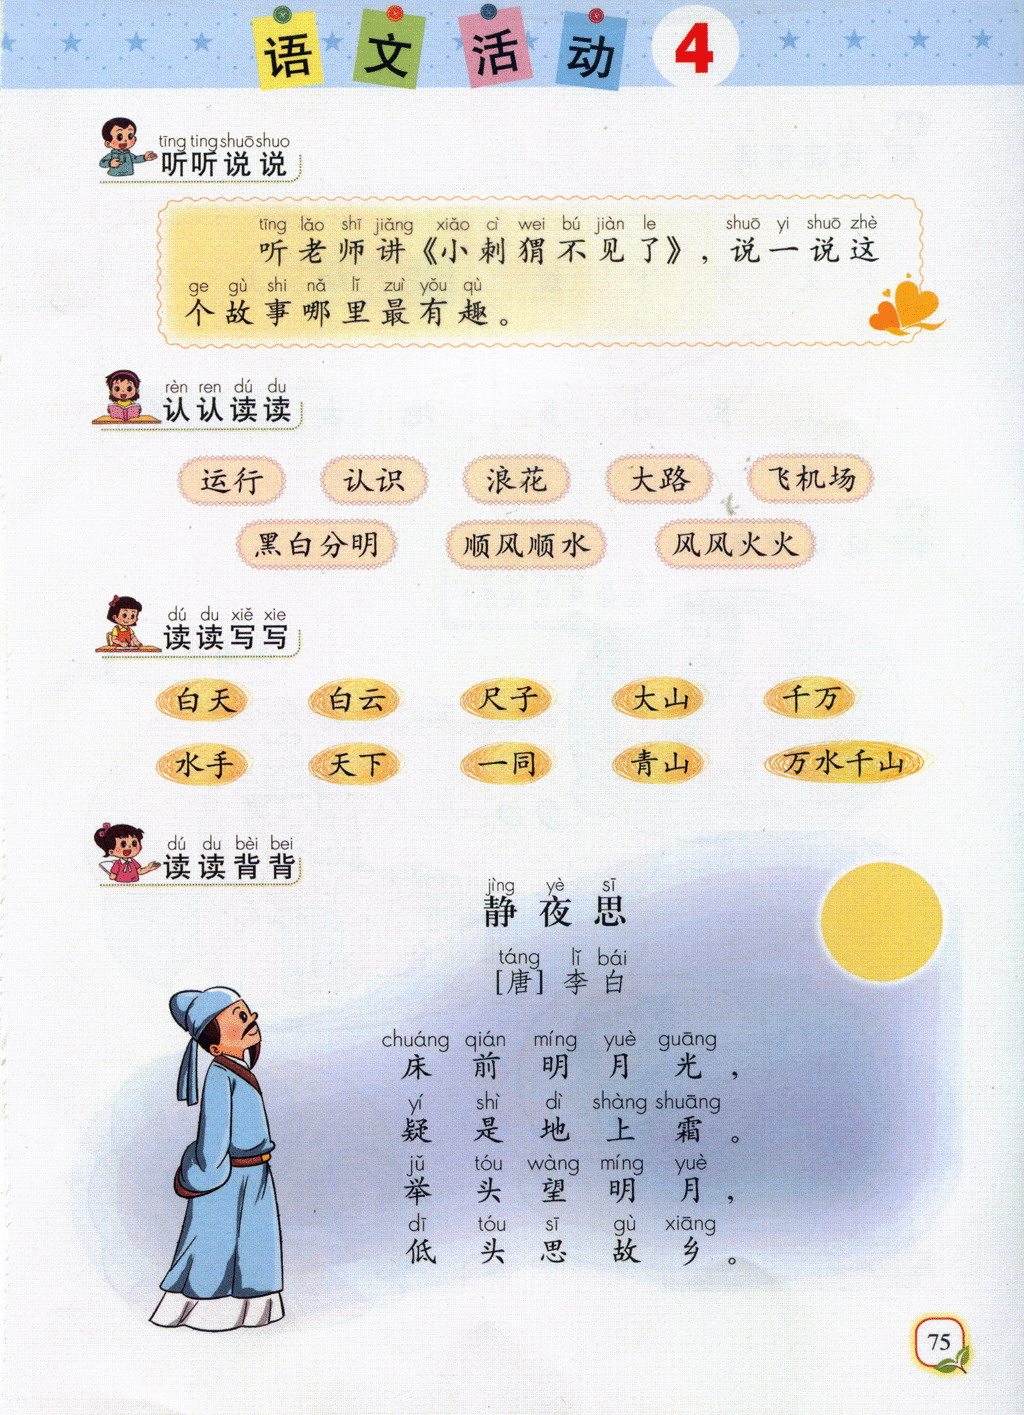 语文活动 4
tīng ting shuō shuo
听听说说
tīng lǎo shī jiǎng xiǎo cì wei bú jiàn le shuō yi shuō zhè
听老师讲《小刺猬不见了》,说一说这
ge gù shi nǎ lǐ zuì yǒu qù
个故事哪里最有趣。
rèn ren dú du
认认读读
运行 认识 浪花 大路 飞机场
黑白分明 顺风顺水 风风火火
dú du xiě xie
读读写写
白天 白云 尺子 大山 千万
水手 天下 一同 青山 万水千山
dú du bèi bei
读读背背
jìng yè sī
静夜思
táng lǐ bái
[唐] 李白
chuáng qián míng yuè guāng
床前明月光,
yí shì dì shàng shuāng
疑是地上霜。
jǔ tóu wàng míng yuè
举头望明月,
dī tóu sī gù xiāng
低头思故乡。
75